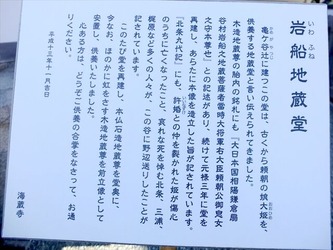 岩船地蔵堂
いわ ふね
亀ケ谷辻に建つこの堂は、古くから頼朝の娘大姫を、
供養する地蔵堂と言い伝えられてきました。
木造地蔵尊の胎内の銘札にも「大日本国相陽鎌倉扇
谷村岩船之地蔵菩薩者當時大将軍右大臣頼朝公御息女
之守本尊也」との記述があり、続けて元禄三年に堂を
再建し、あらたに本像を造立した旨が記されています。
「北条九代記」にも、許婚との仲を裂かれた姫が傷心
のうちに亡くなったこと、哀れな死を悼む北条、三浦、
梶原など多くの人々が、この谷に野辺送りしたことが
記されています。
このたび堂を再建し、本仏石造地蔵尊を堂奥に、
今なお、ほのかに虹をさす木造地蔵尊を前立像として
安置し、供養いたしました。
心ある方は、どうぞご供養の合掌をなさって、お通
りください。
平成十三年十一月吉日
海蔵寺